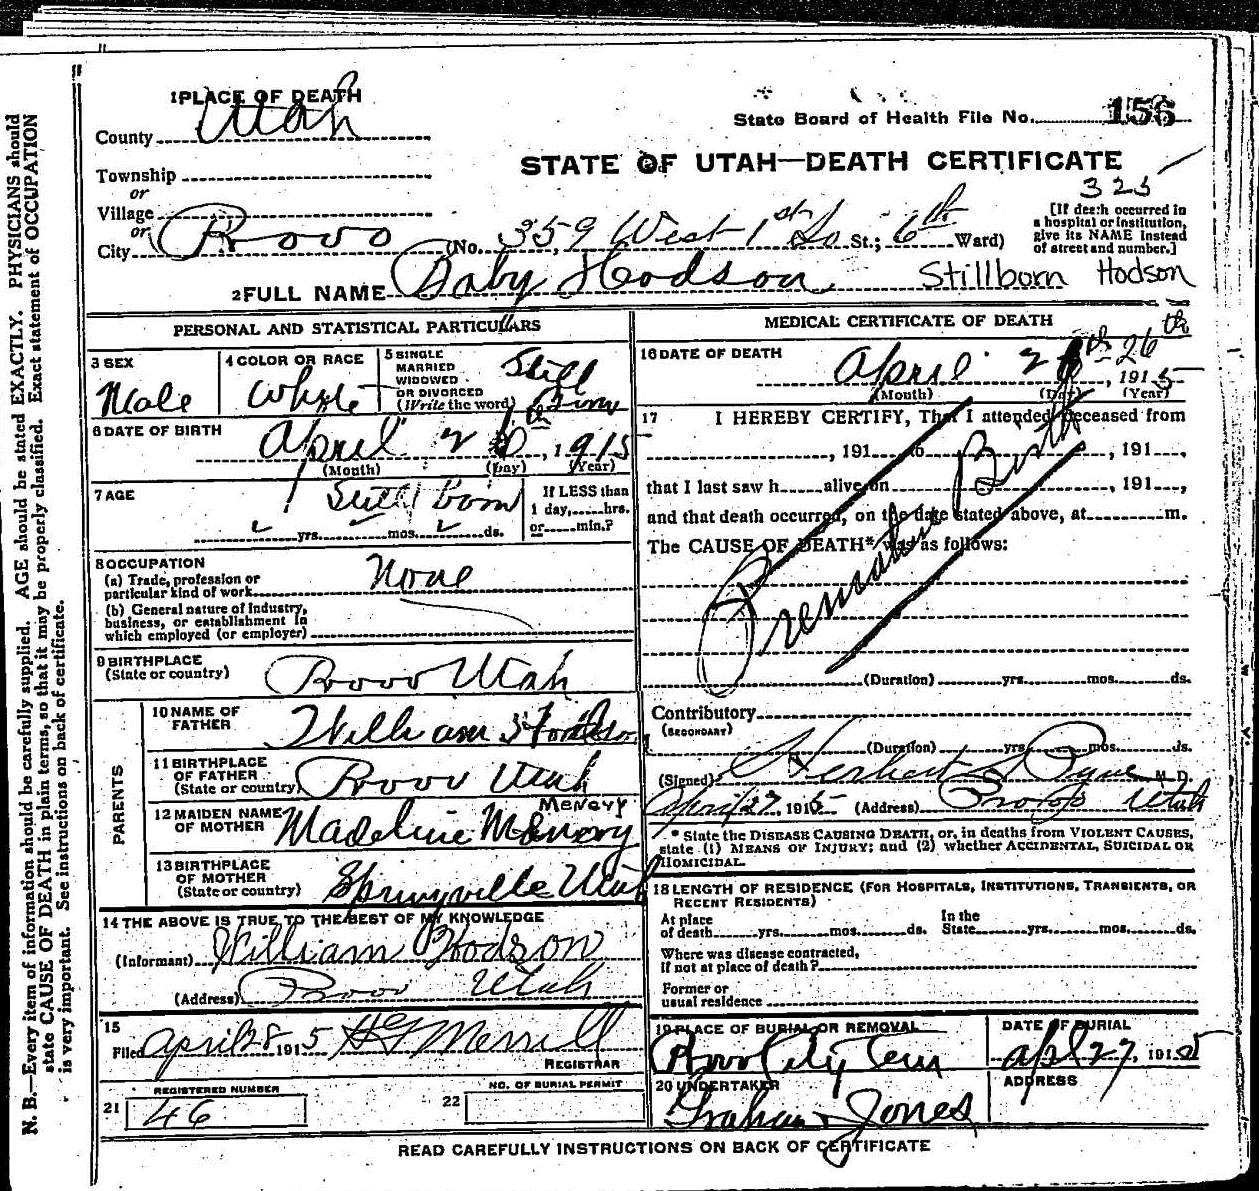 1 PLACE OF DEATH
County Utah
State Board of Health File No. 156
STATE OF UTAH—DEATH CERTIFICATE
Township
or
Village
or
City Provo (No. 359 West 1st So St.; 6th Ward)
325
[If death occurred in
a hospital or institution,
give its NAME instead
of street and number.]
2 FULL NAME Baby Hodson. Stillborn Hodson
PERSONAL AND STATISTICAL PARTICULARS
3 SEX
Male
4 COLOR OR RACE
White
5 SINGLE
MARRIED
WIDOWED
OR DIVORCED
(Write the word)
Still Born
6 DATE OF BIRTH
April 26, 1915
(Month) (Day) (Year)
7 AGE
Still Born
yrs. mos. ds.
If LESS than
1 day, hrs.
or min.?
8 OCCUPATION
(a) Trade, profession or
particular kind of work None
(b) General nature of Industry,
business, or establishment in
which employed (or employer)
9 BIRTHPLACE
(State or country) Provo Utah
PARENTS
10 NAME OF
FATHER William Hodson
11 BIRTHPLACE
OF FATHER
(State or country) Provo Utah
12 MAIDEN NAME
OF MOTHER Madeline
13 BIRTHPLACE
OF MOTHER
(State or country) Springville Utah
14 THE ABOVE IS TRUE TO THE BEST OF MY KNOWLEDGE
(Informant) William Hodson
(Address) Provo Utah
15
Filed April 28 1915 Merrill
REGISTRAR
REGISTERED NUMBER
21 46
NO. OF BURIAL PERMIT
22
MEDICAL CERTIFICATE OF DEATH
16 DATE OF DEATH
April 26th, 1915
(Month) (Day) (Year)
17 I HEREBY CERTIFY, That I attended deceased from
, 191 to , 191 ,
that I last saw h alive on , 191 ,
and that death occurred, on the date stated above, at m.
The CAUSE OF DEATH* was as follows:
Premature Birth
(Duration) yrs. mos. ds.
Contributory
(SECONDARY)
(Duration) yrs. mos. ds.
(Signed) Herbert S Pyne M. D.
April 27 1915 (Address) Provo Utah
* State the DISEASE CAUSING DEATH, or, in deaths from VIOLENT CAUSES,
state (1) MEANS OF INJURY; and (2) whether ACCIDENTAL, SUICIDAL OR
HOMICIDAL.
18 LENGTH OF RESIDENCE (FOR HOSPITALS, INSTITUTIONS, TRANSIENTS, OR
RECENT RESIDENTS)
At place
of death yrs. mos. ds.
In the
State yrs. mos. ds.
Where was disease contracted,
if not at place of death?
Former or
usual residence
19 PLACE OF BURIAL OR REMOVAL
Provo City Cem
DATE OF BURIAL
Apl 27, 1915
20 UNDERTAKER
Graham Jones
ADDRESS
READ CAREFULLY INSTRUCTIONS ON BACK OF CERTIFICATE
N. B.—Every item of information should be carefully supplied. AGE should be stated EXACTLY. PHYSICIANS should
state CAUSE OF DEATH in plain terms, so that it may be properly classified. Exact statement of OCCUPATION
is very important. See instructions on back of certificate.